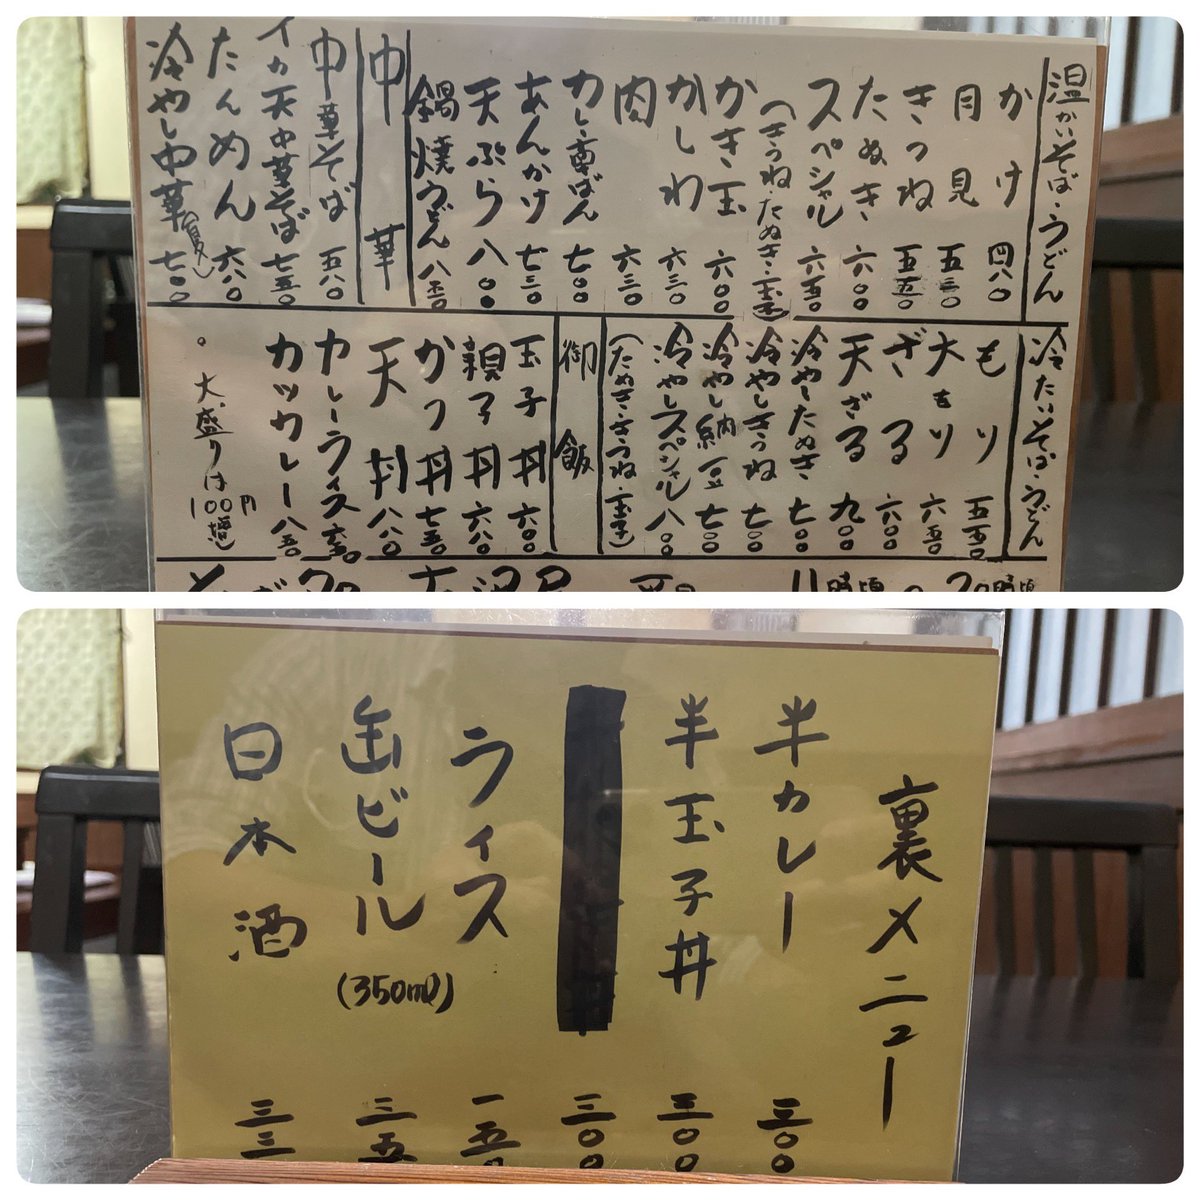 温かいそば・うどん
かけ 四八〇
月見 五三〇
きつね 五五〇
たぬき 六〇〇
スペシャル 六五〇
(きつねたぬき・玉子)
かき玉 六〇〇
かしわ 六三〇
肉 六三〇
カレー南ばん 七〇〇
あんかけ 七三〇
天ぷら 八〇〇
鍋焼うどん 八五〇
中華
中華そば 五八〇
イカ天中華そば 七五〇
たんめん 六八〇
冷やし中華(夏) 七〇〇
冷たいそば・うどん
もり 五五〇
大もり 六五〇
ざる 六〇〇
天ざる 九〇〇
冷やしたぬき 七〇〇
冷やしきつね 七〇〇
冷やし納豆 七〇〇
冷やしスペシャル 八〇〇
(たぬき・きつね・玉子)
御飯
玉子丼 六〇〇
親子丼 六八〇
かつ丼 七五〇
天丼 八八〇
カレーライス
カツカレー 八五〇
。大盛りは100円増
裏メニュー
半カレー 三〇〇
半玉子丼 三〇〇
三〇〇
ライス 一五〇
缶ビール(350ml) 三五
日本酒 三三